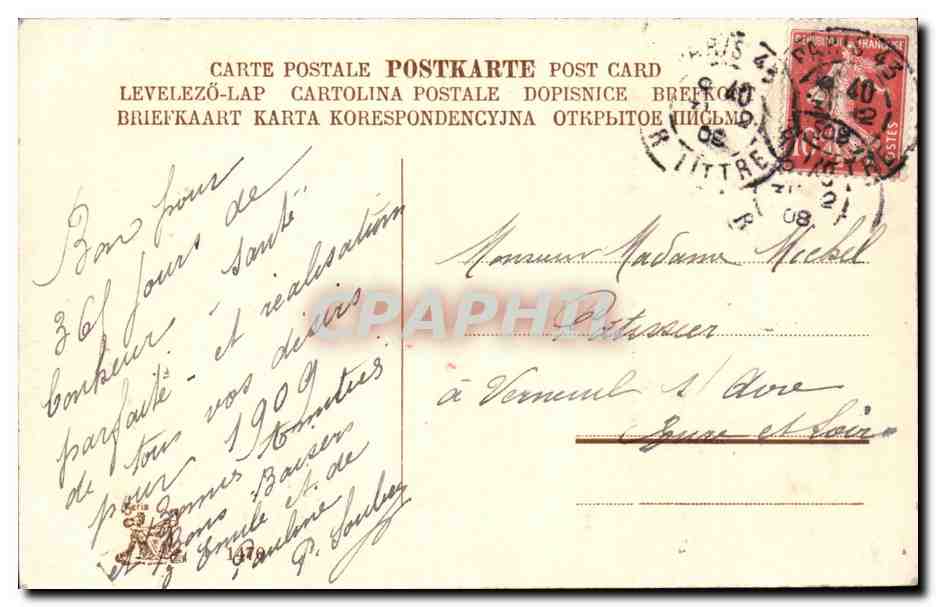 CARTE POSTALE POSTKARTE POST CARD
LEVELEZŐ-LAP CARTOLINA POSTALE DOPISNICE BREFKORT
BRIEFKAART KARTA KORESPONDENCYJNA ОТКРЫТОЕ ПИСЬМО
REPUBLIQUE FRANÇAISE
POSTES
PARIS 43
R. LITTRE
Bon pour
365 jours de
bonheur - santé
parfaite - et réalisation
de tous vos désirs
pour 1909
Amitiés
et Bons Baisers
Emile et de
Pauline
P.
Monsieur Madame Michel
Patissier
à Verneuil s/ Avre
Eure et Loir
CPAPHIL
Serie
1470